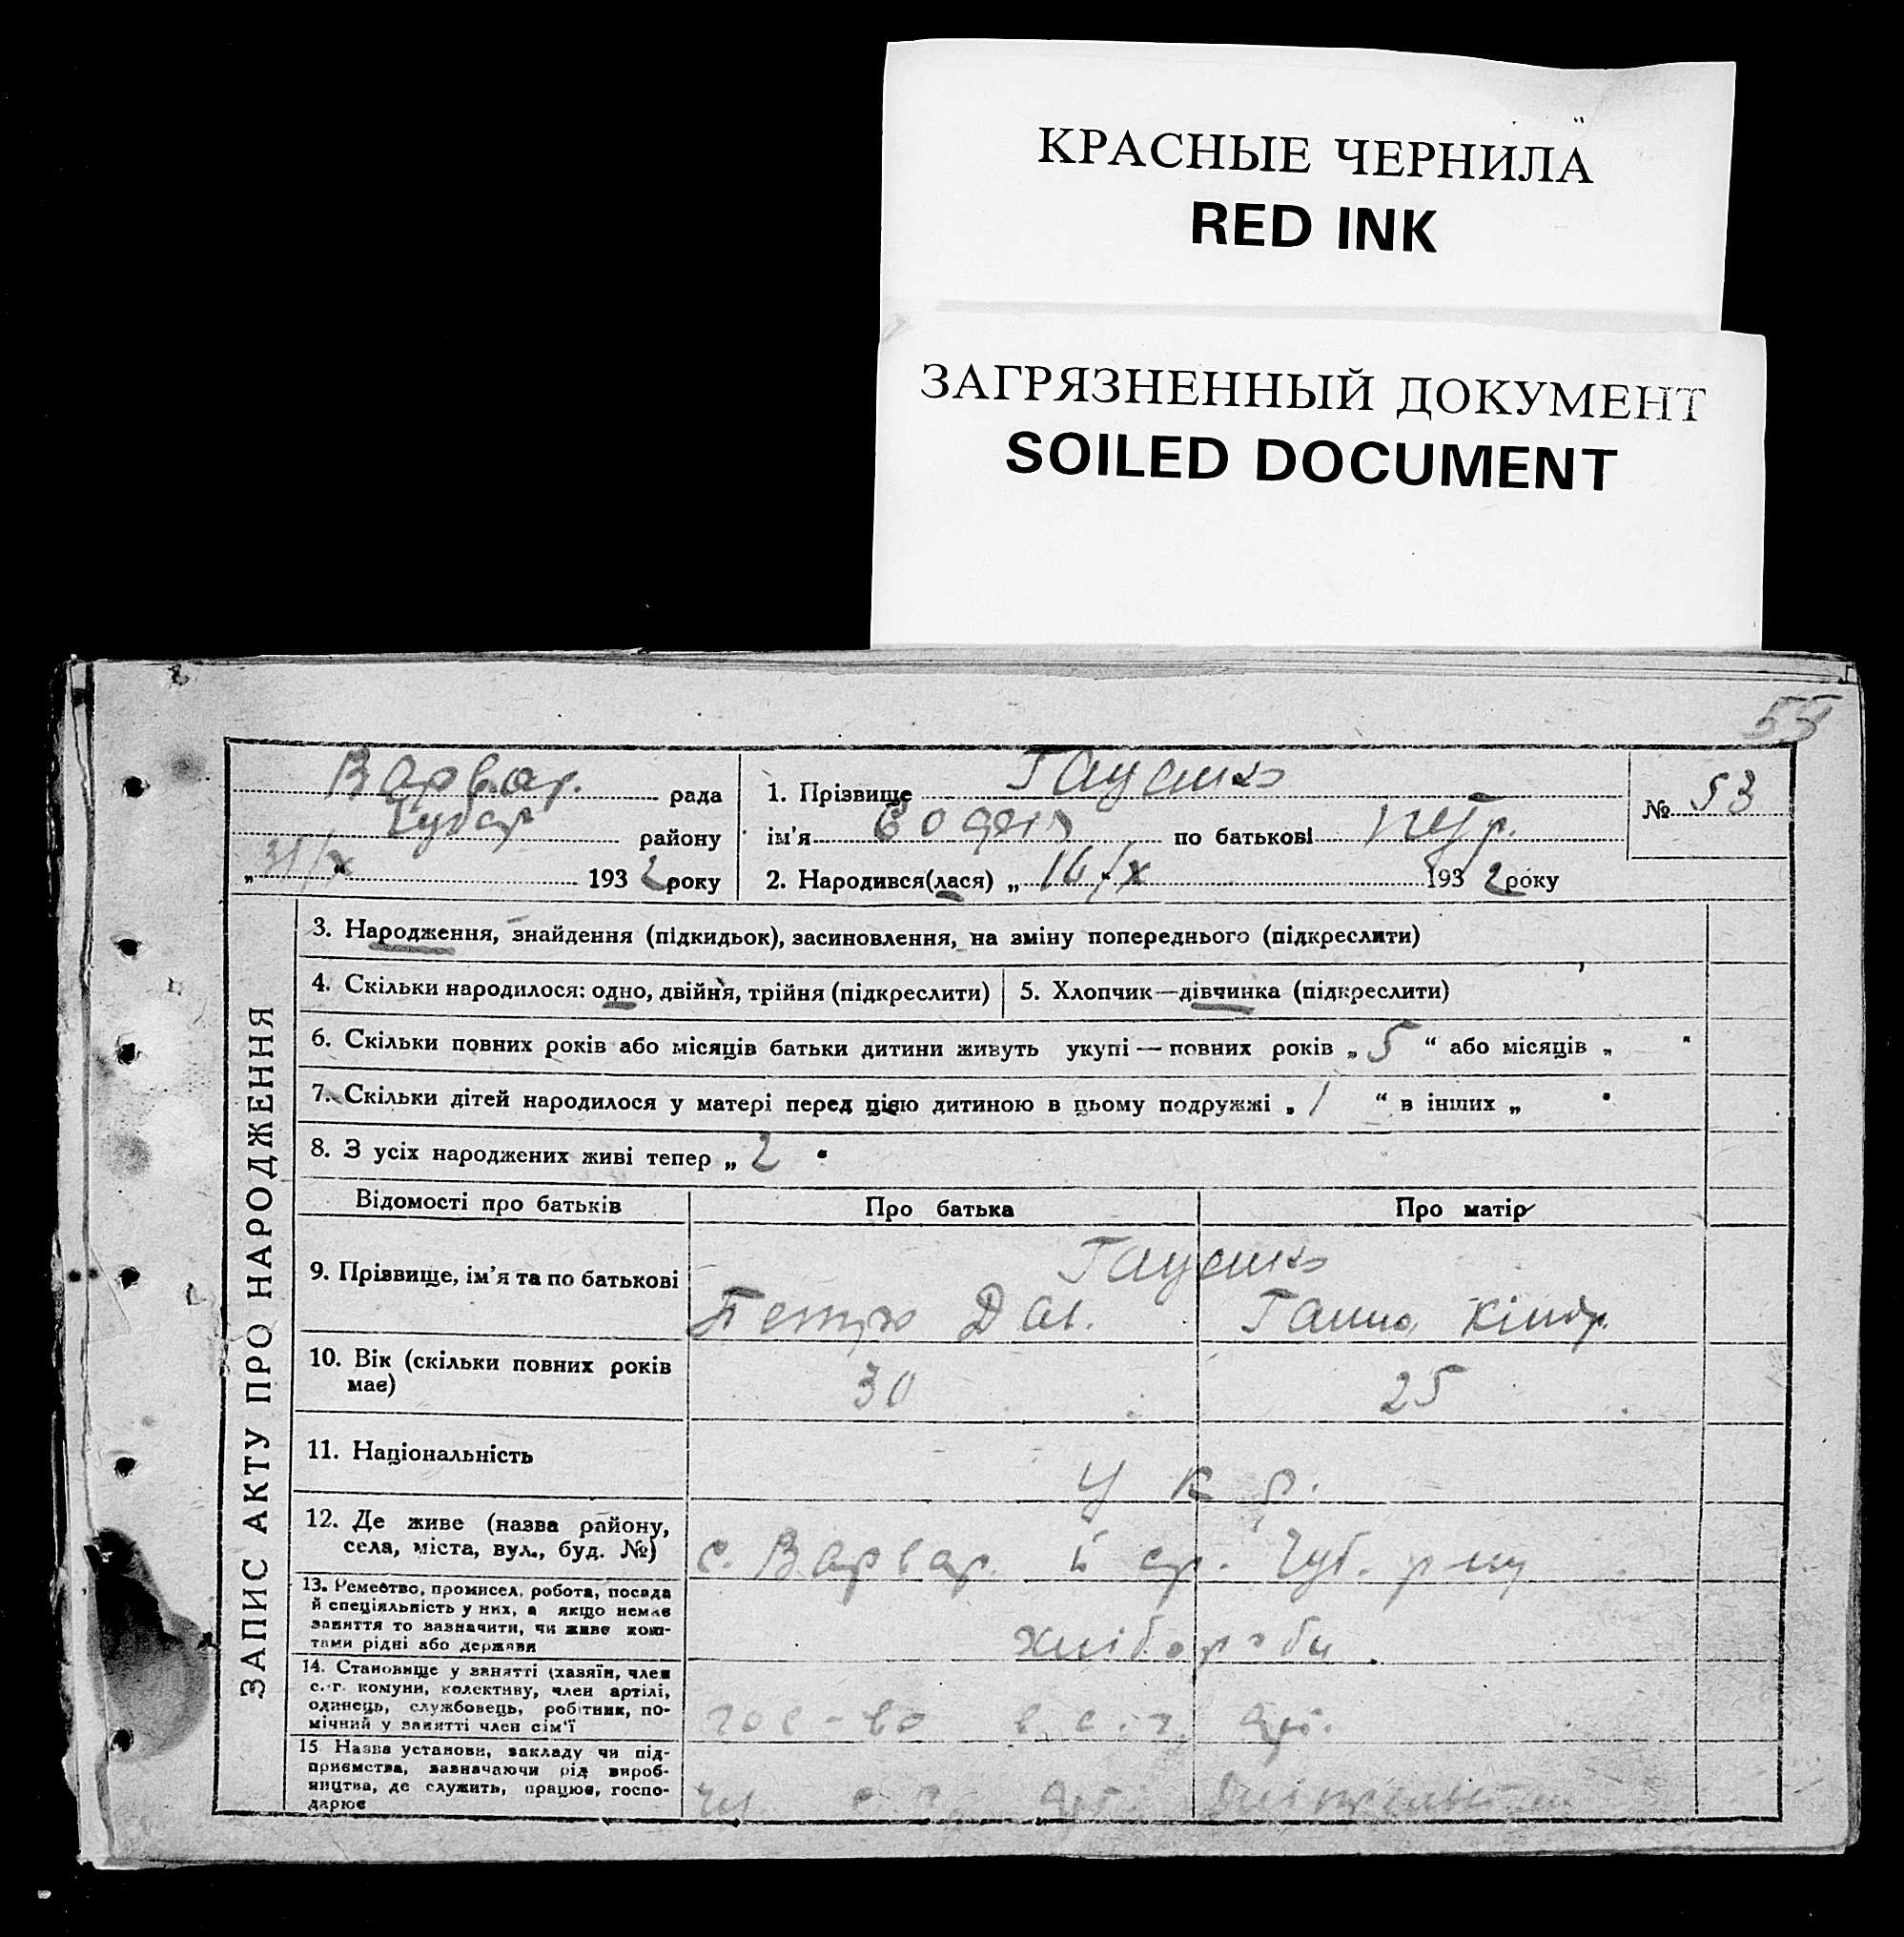 КРАСНЫЕ ЧЕРНИЛА
RED INK
ЗАГРЯЗНЕННЫЙ ДОКУМЕНТ
SOILED DOCUMENT
55
Варвар. рада
Чубар району
„31/X“ 1932 року
1. Прізвище
ім'я по батькові Петр.
2. Народився(лася) „16/X 1932 року
№ 53
ЗАПИС АКТУ ПРО НАРОДЖЕННЯ
3. Народження, знайдення (підкидьок), засиновлення, на зміну попереднього (підкреслити)
4. Скільки народилося: одно, двійня, трійня (підкреслити)
5. Хлопчик—дівчинка (підкреслити)
6. Скільки повних років або місяців батьки дитини живуть укупі — повних років „ 5 “ або місяців „ “
7. Скільки дітей народилося у матері перед цією дитиною в цьому подружжі „ 1 “ в інших „ “
8. З усіх народжених живі тепер „ 2 “
Відомості про батьків Про батька Про матір
9. Прізвище, ім'я та по батькові
Петро Дан. Ганна Кіндр.
10. Вік (скільки повних років має) 30 25
11. Національність
Укр.
12. Де живе (назва району,
села, міста, вул., буд. №) с. Варвар. Чуб. р-ну
13. Ремество, промисел, робота, посада
й спеціяльність у них, а якщо немає
заняття то зазначити, чи живе кош-
тами рідні або держави
хлібороби
14. Становище у занятті (хазяїн, член
с.-г. комуни, колективу, член артілі,
одинець, службовець, робітник, по-
мічний у занятті член сім'ї
гос-во в с.г. арт.
15 Назва установи, закладу чи під-
приємства, зазначаючи рід вироб-
ництва, де служить, працює, госпо-
дарює